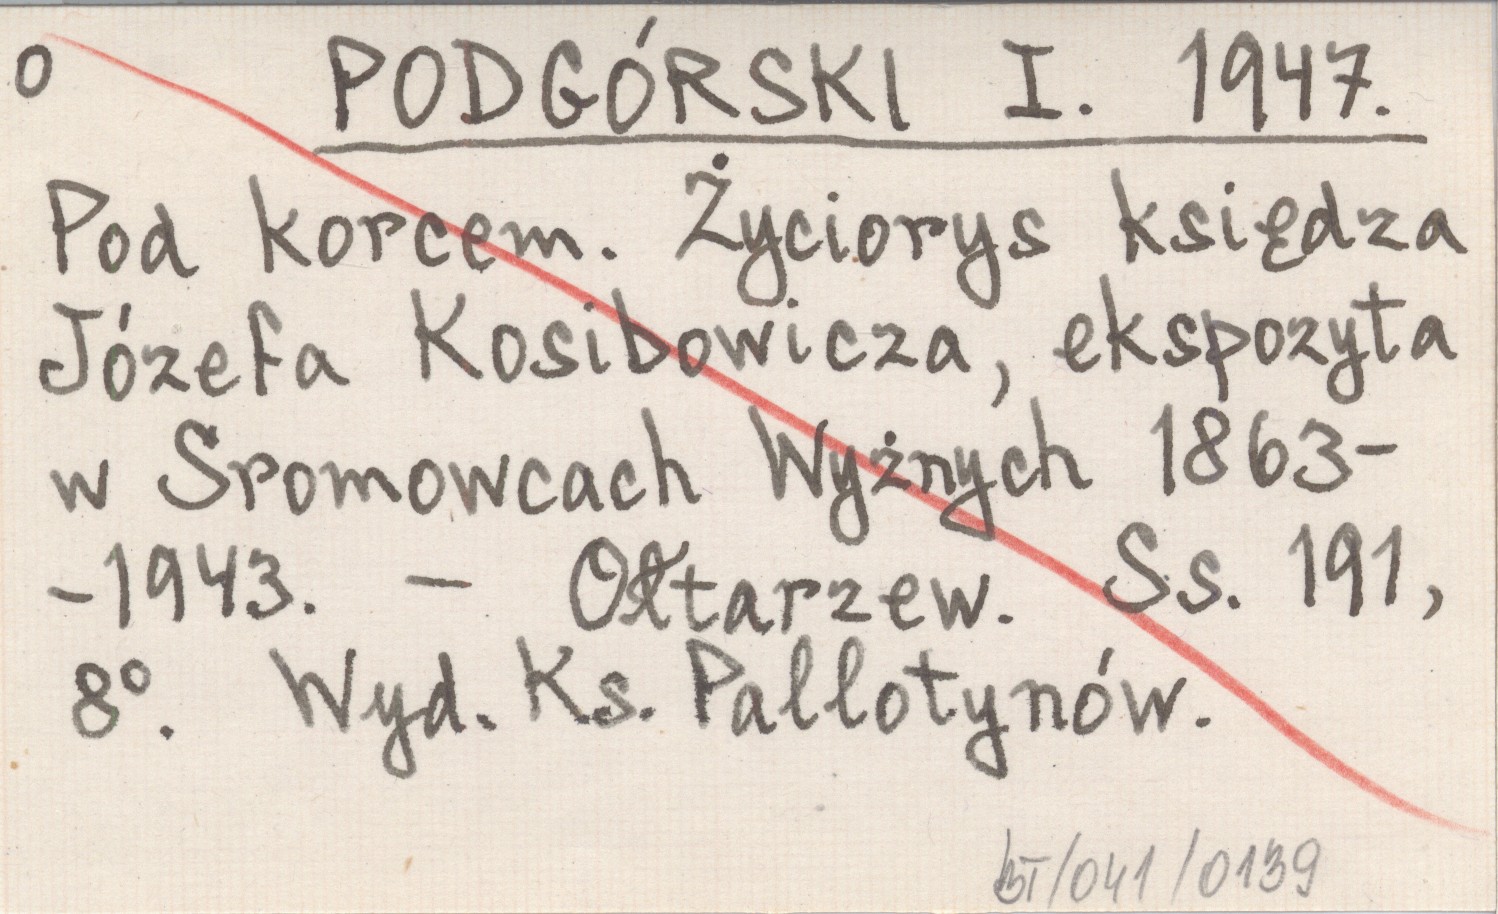 O PODGÓRSKI I. 1947.
Pod korcem. Życiorys księdza
Józefa Kosibowicza, ekspozyta
w Sromowcach Wyżnych 1863-
-1943. — Ołtarzew. Ss. 191,
8°. Wyd. Ks. Pallotynów.
BT/041/0139